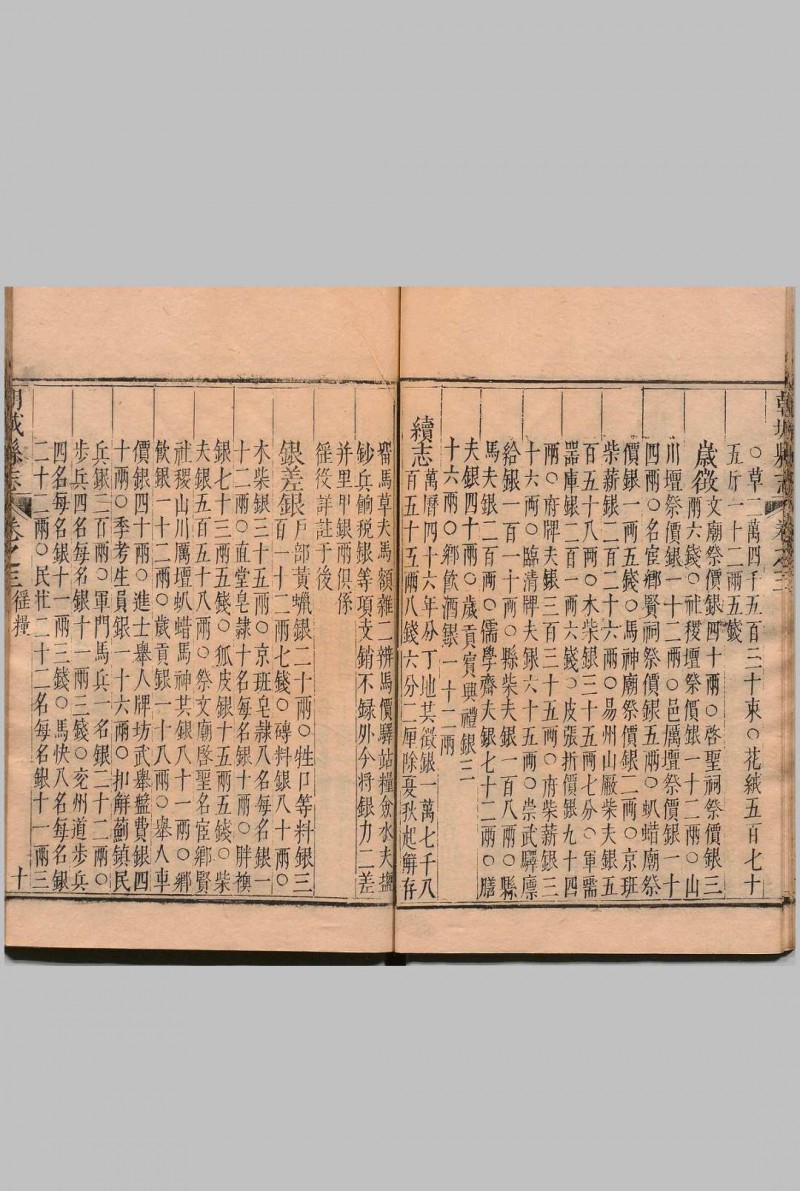 朝城縣志 卷之三
○草二萬四千五百三十束○花絨五百七十
五斤一十二兩五錢
歲徵文廟祭價銀四十兩○啓聖祠祭價銀三
兩六錢○社稷壇祭價銀一十二兩○山
川壇祭價銀一十二兩○邑厲壇祭價銀一十
四兩○名宦鄉賢祠祭價銀五兩○䖝蜡廟祭
價銀一兩五錢○馬神廟祭價銀二兩○京班
柴薪銀二百二十六兩○易州山厰柴夫銀五
百五十八兩○木柴銀三十五兩七分○軍需
噐庫銀二百一兩六錢○皮張折價銀九十四
兩○府牌夫銀三百三十五兩○府柴薪銀三
十六兩○臨清牌夫銀六十五兩○崇武驛廪
給銀一百十兩○縣柴夫銀一百八兩○縣
馬夫銀二百兩○儒學齋夫銀七十二兩○膳
夫銀四十兩○歲貢賓興禮銀三
十六兩○鄉飲酒銀一十二兩
續志萬曆四十六年分丁地共徵銀一萬七千八
百五十五兩八錢六分二厘除夏秋起解存
留馬草夫馬額雜二辨馬價驛站糧僉水夫鹽
鈔兵餉税银等項支銷不録外今将銀力二差
并里甲銀兩俱係
徭役詳註于後
銀差銀戶部黄蠟銀二十兩○牲口等料銀三
百一十二兩七錢○磚料銀八十兩○
木柴銀三十五兩○京班皂隷八名每名銀一
十二兩○直堂皂隷十名每名銀十兩○胖襖
銀七十三兩五錢○狐皮銀十五兩五錢○柴
夫銀五百五十八兩○祭文廟啓聖名宦鄉賢
社稷山川厲壇䖝蜡馬神共銀八十一兩○鄉
飲銀一十二兩○歲貢銀一十八兩○舉人車
價銀四十兩○進士舉人牌坊武舉盤費銀四
十兩○季考生員銀一十六兩○扣解薊鎮民
兵銀二百兩○軍門馬兵一名銀二十二兩○
步兵四名每名銀十一兩三錢○兖州道步兵
四名每名銀十一兩三錢○馬快八名每名銀
二十二兩○民壯二十二名每名銀十一兩三
朝城縣志 卷之三 徭糧 十